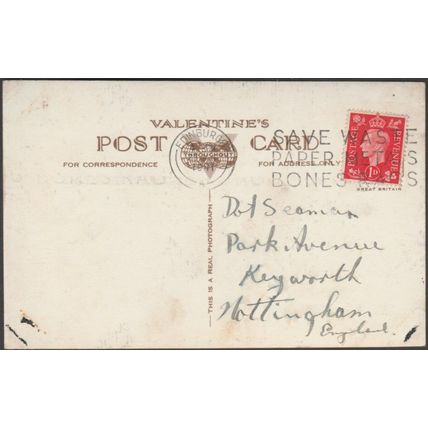 VALENTINE'S
POST CARD
FOR CORRESPONDENCE
FOR ADDRESS ONLY
EDINBURGH
THROUGHOUT
SAVE WASTE
PAPER METALS
BONES RAGS
POSTAGE REVENUE
1D
GREAT BRITAIN
THIS IS A REAL PHOTOGRAPH
Dot Seaman
Park Avenue
Keyworth
Nottingham
England.